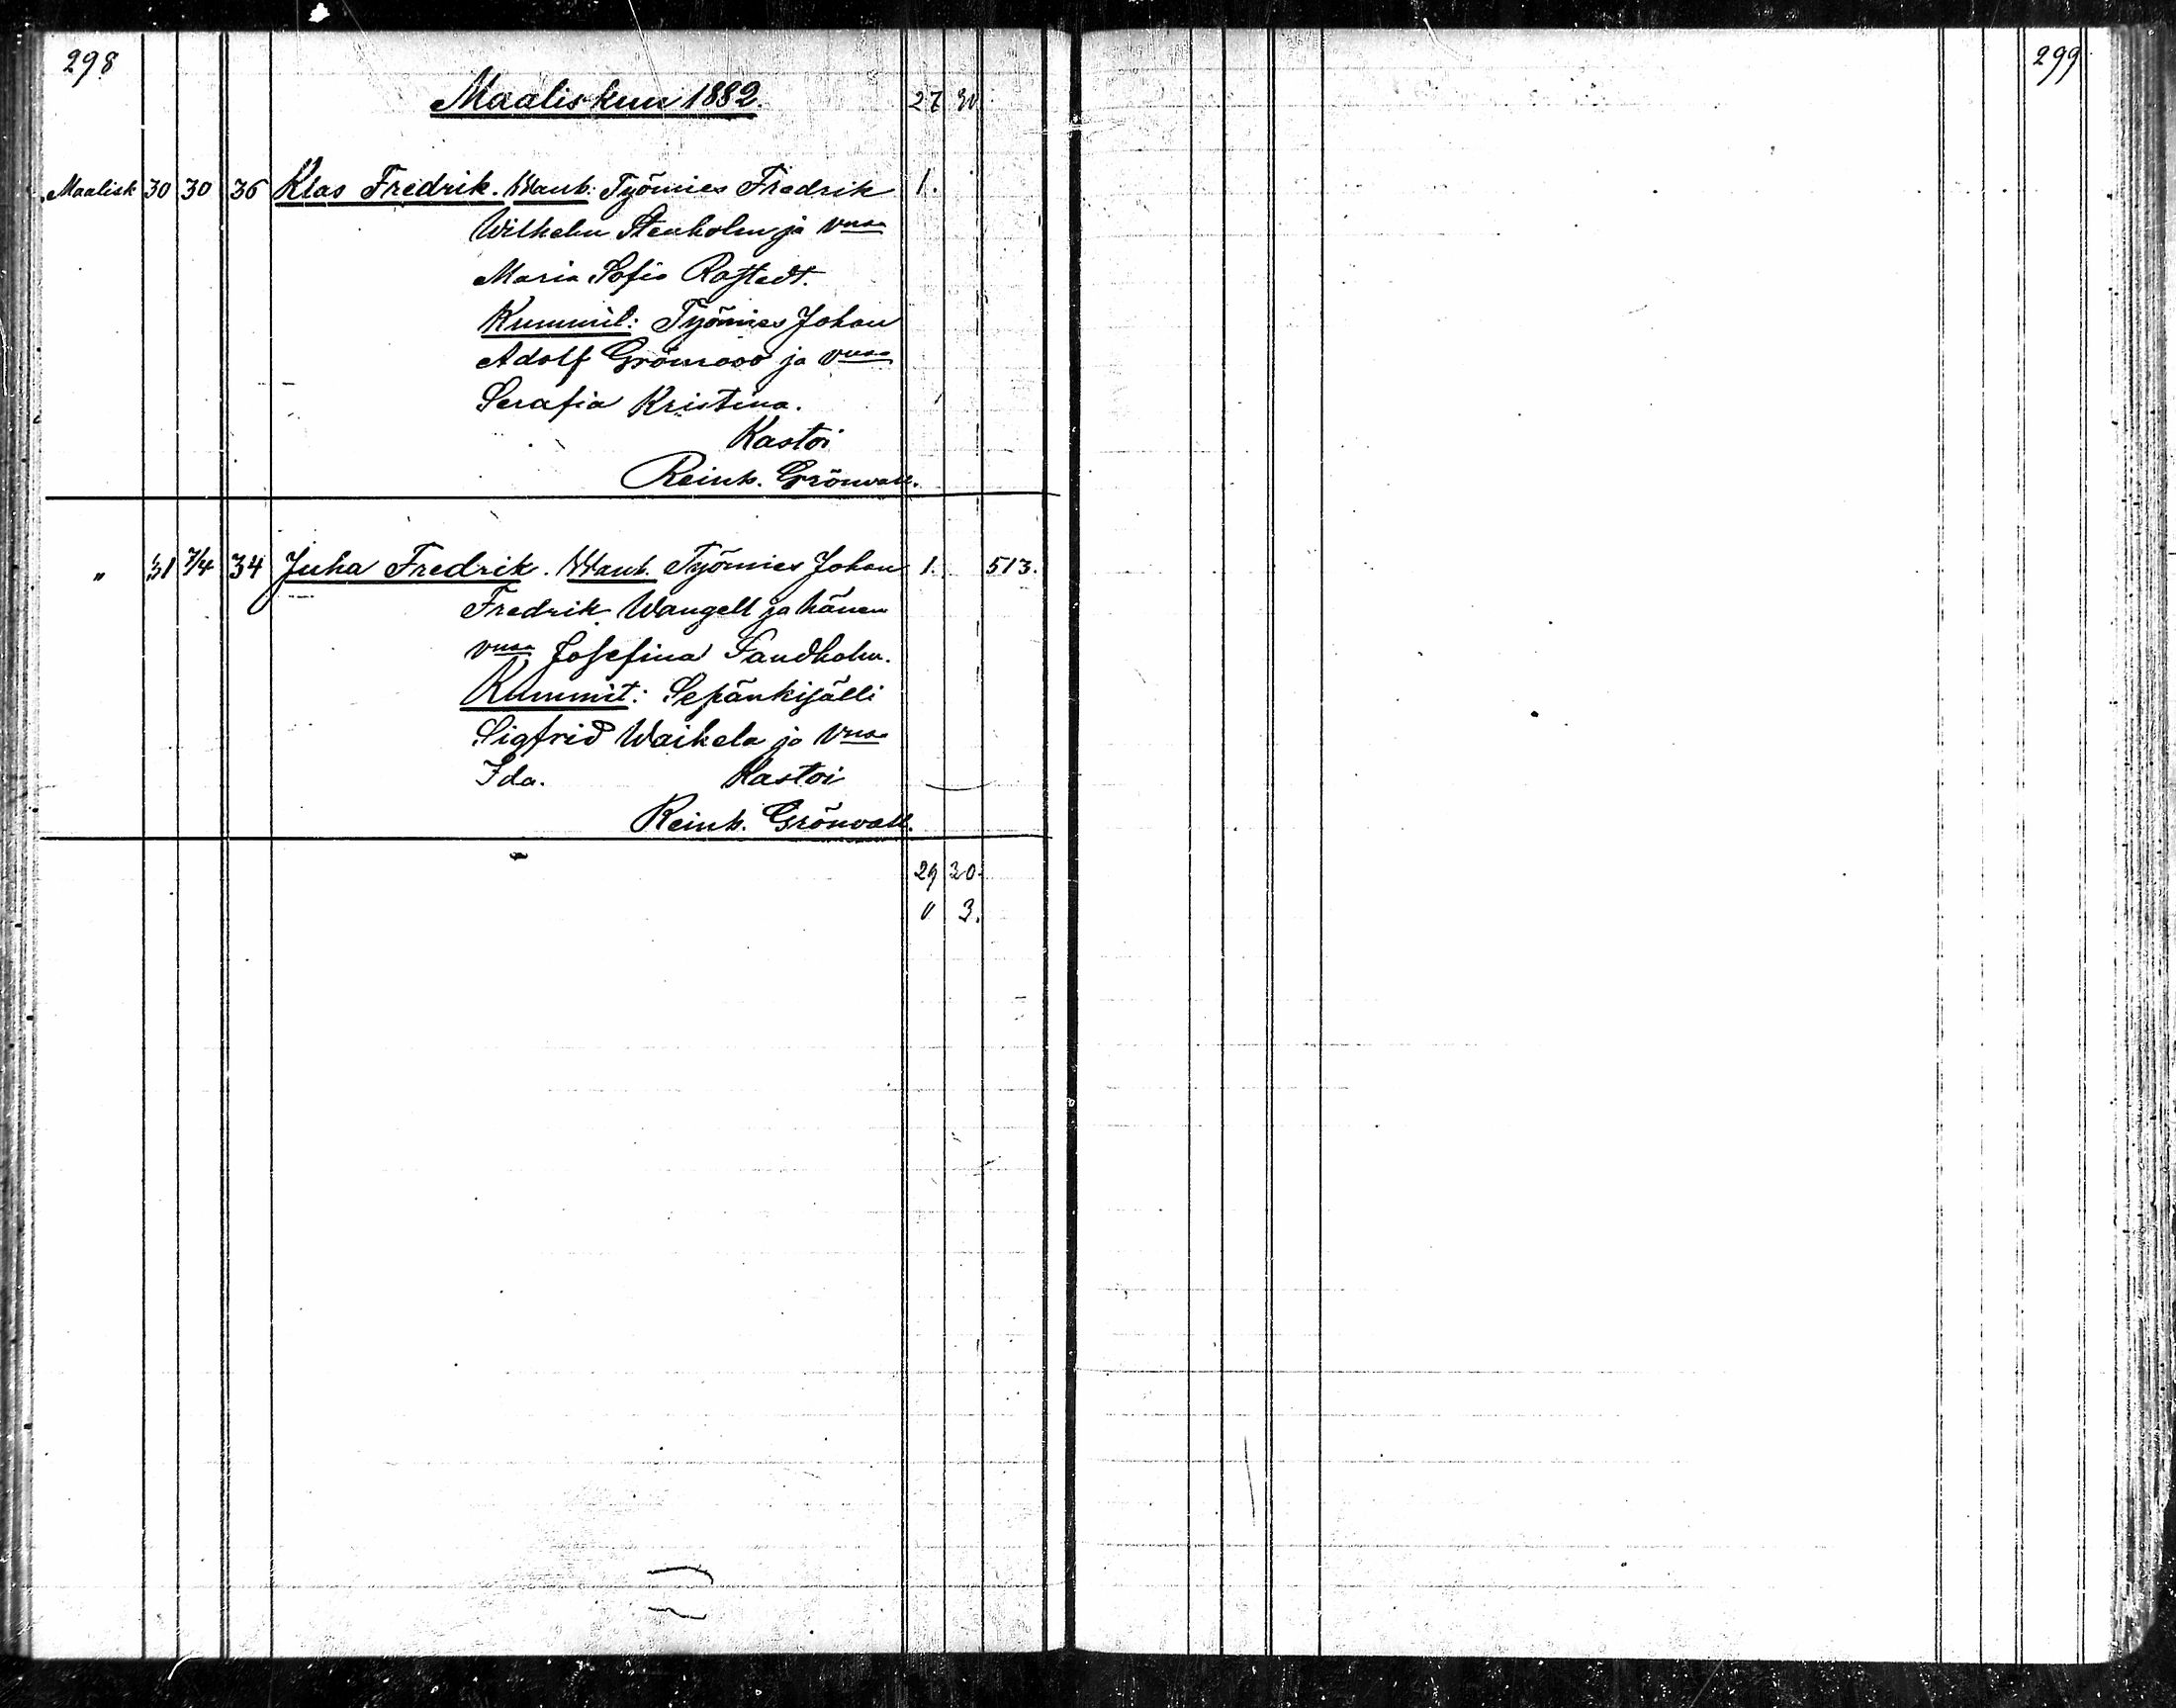 298
299
Maaliskuu 1882. 27 30
Maalisk 30 30 36 Klas Fredrik. Wanh: Työmies Fredrik 1.
Wilhelm Stenholm ja vmsa
Maria Sofia Rostedt.
Kummit: Työmies Johan
Adolf Grönroos ja vmsa
Serafia Kristina.
Kastoi
Reinh. Grönvall.
" 31 7/4 34 Juha Fredrik. Wanh. Työmies Johan 1. 513.
Fredrik Wangell ja hänen
vmsa Josefina Sandholm.
Kummit: Sepänkisälli
Sigfrid Waikela ja vmsa
Ida. Kastoi
Reinh. Grönvall.
29 30.
3.